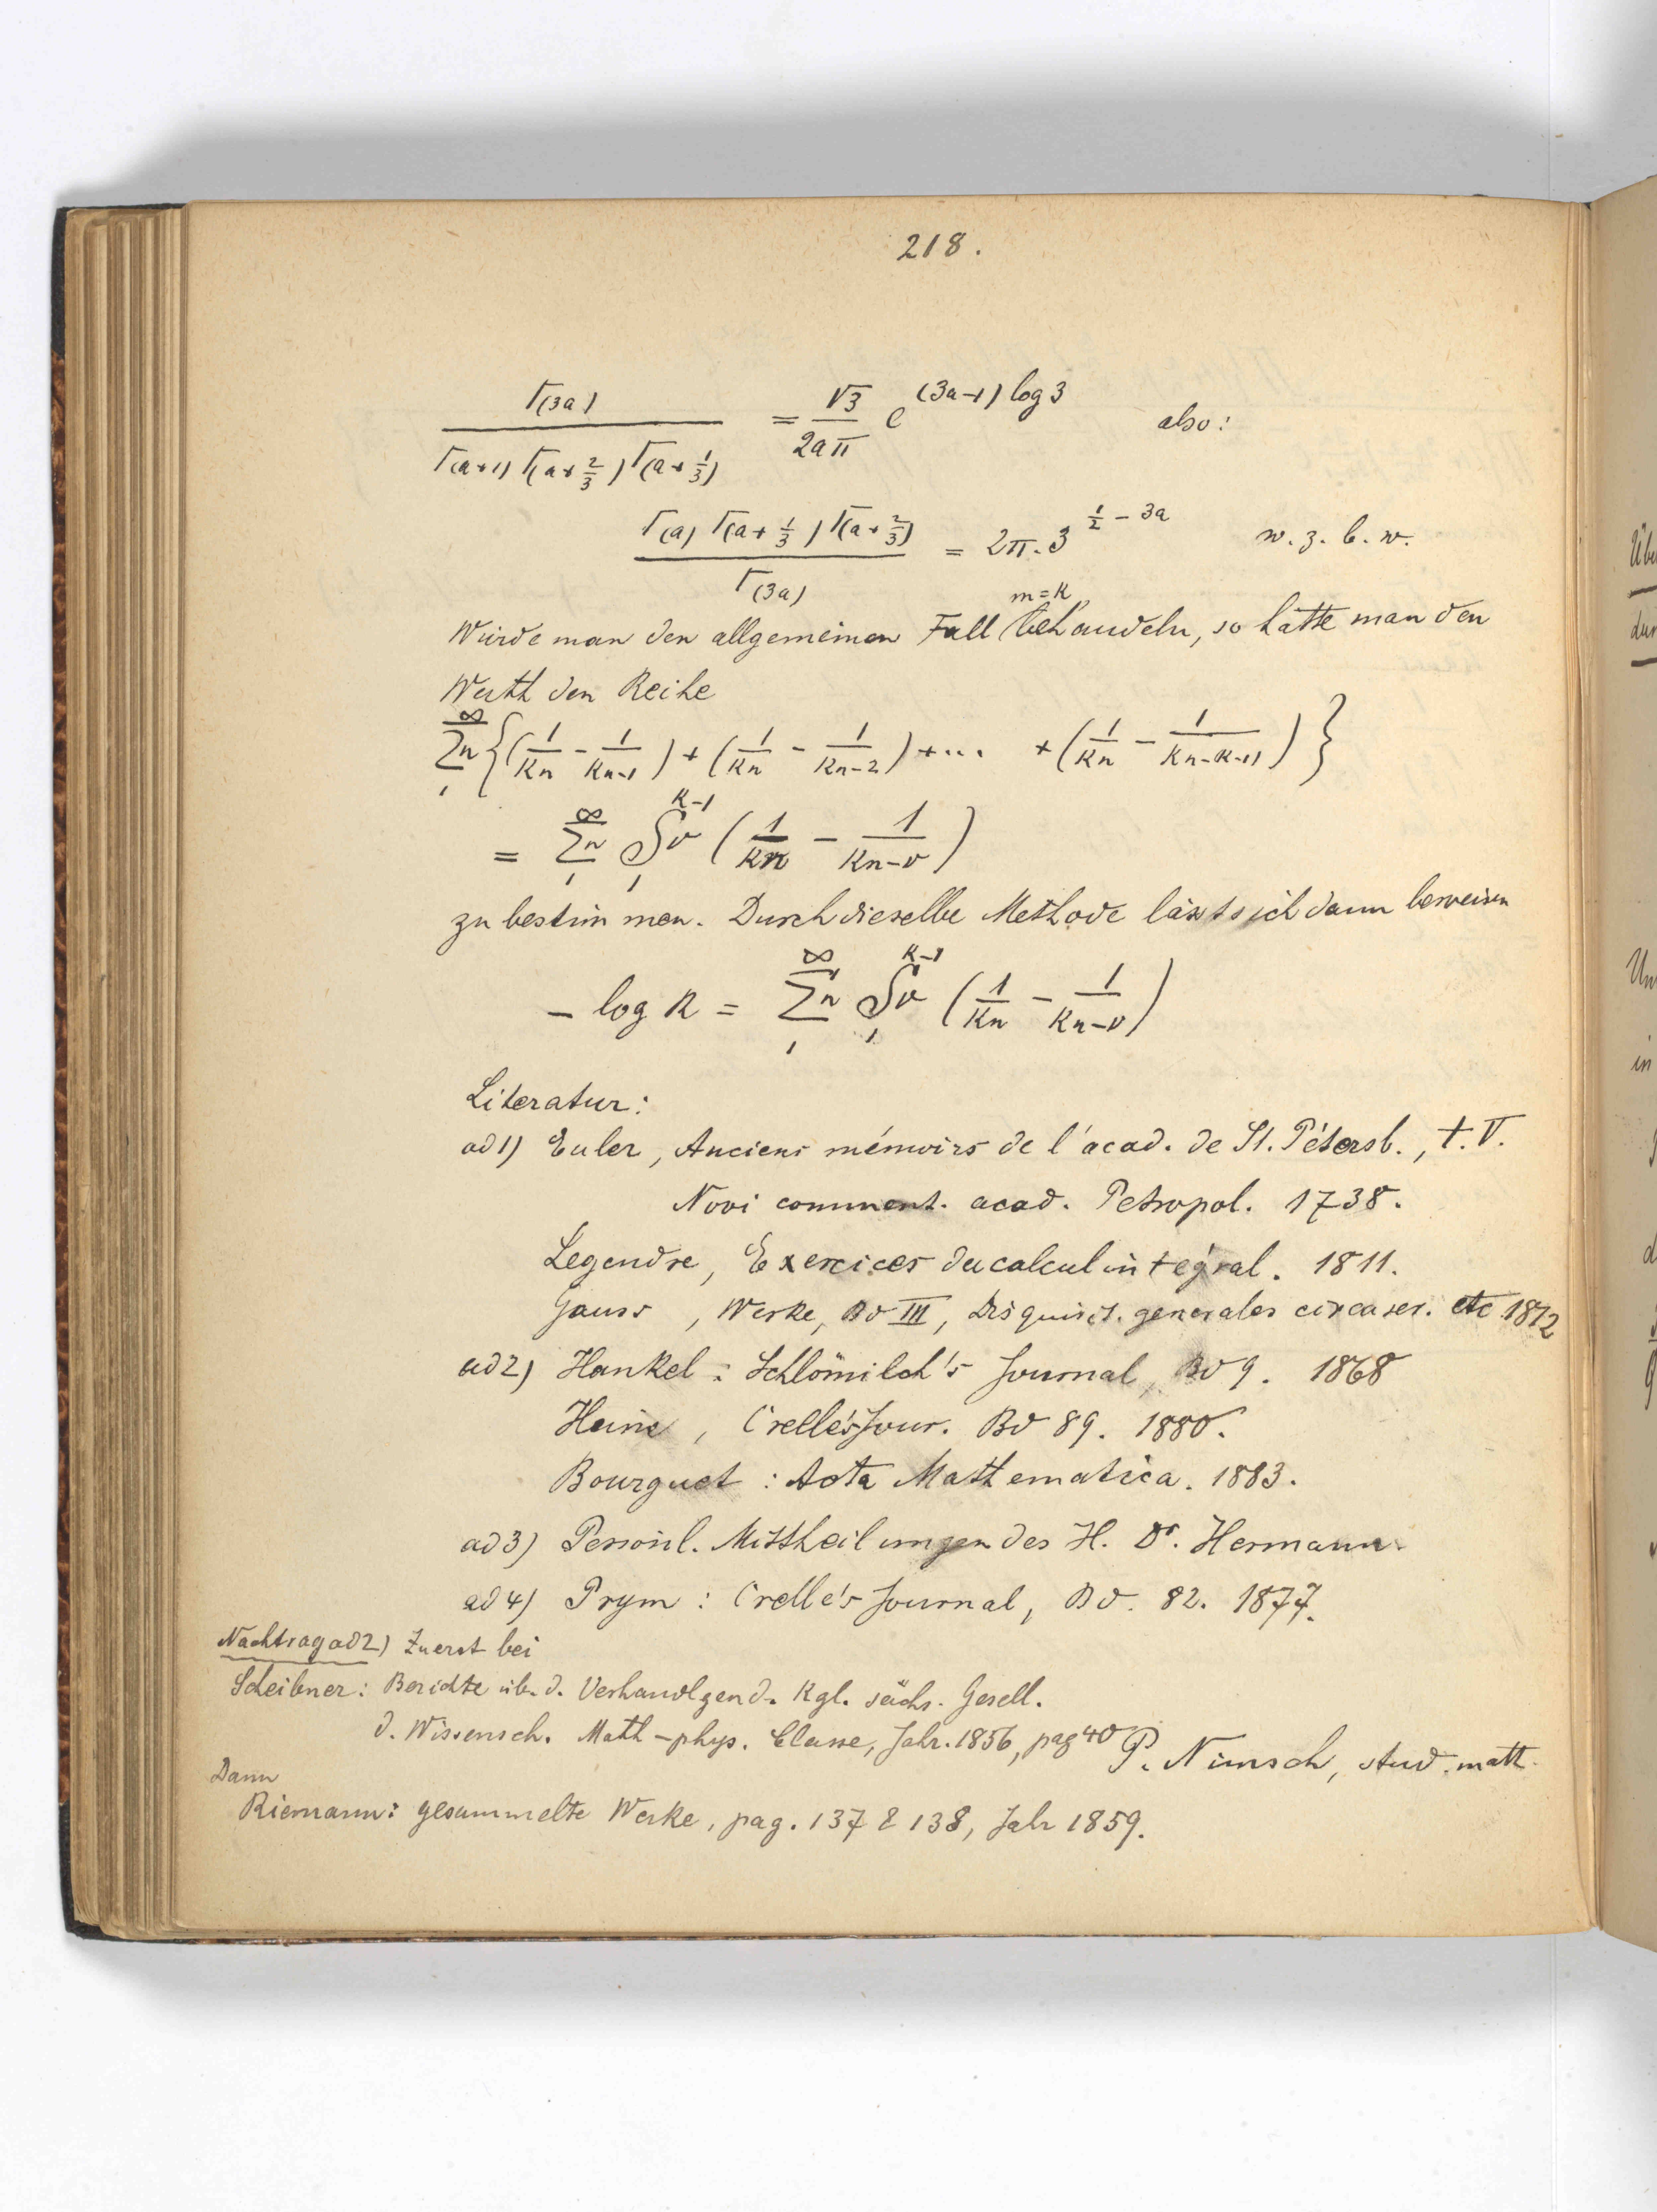 218.
Γ(3a) / Γ(a+1) Γ(a+2/3) Γ(a+1/3) = √3 / 2aπ e^{(3a-1) log 3} also:
Γ(a) Γ(a+1/3) Γ(a+2/3) / Γ(3a) = 2π·3^{1/2 - 3a} w. z. b. w.
Würde man den allgemeinen Fall m=k behandeln, so hätte man den
Werth den Reihe
∞ Σn 1 {(1/kn - 1/kn-1) + (1/kn - 1/kn-2) + ... + (1/kn - 1/kn-k+1)}
= ∞ Σn 1 k-1 Sν 1 (1/kn - 1/kn-ν)
zu bestimmen. Durch dieselbe Methode lässt sich dann beweisen
- log k = ∞ Σn 1 k-1 Sν 1 (1/kn - 1/kn-ν)
Literatur:
ad 1) Euler, Anciens mémoirs de l'acad. de St. Pétersb., t. V.
Novi comment. acad. Petropol. 1738.
Legendre, Exercices du calcul intégral. 1811.
Gauss, Werke, Bd III, Disquisit. generales circa ser. etc 1812
ad 2) Hankel: Schlömilch's Journal, Bd 9. 1868
Heine, Crelle's Jour. Bd 89. 1880.
Bourguet: Acta Mathematica. 1883.
ad 3) Persönl. Mittheilungen des H. Dr. Hermann.
ad 4) Prym: Crelle's Journal, Bd. 82. 1877.
Nachtrag ad 2) Zuerst bei
Scheibner: Berichte üb. d. Verhandlgen d. Kgl. sächs. Gesell.
d. Wissensch. Math-phys. Classe, Jahr. 1856, pag 40
P. Nimsch, stud. math.
Dann
Riemann: gesammelte Werke, pag. 137 & 138, Jahr 1859.